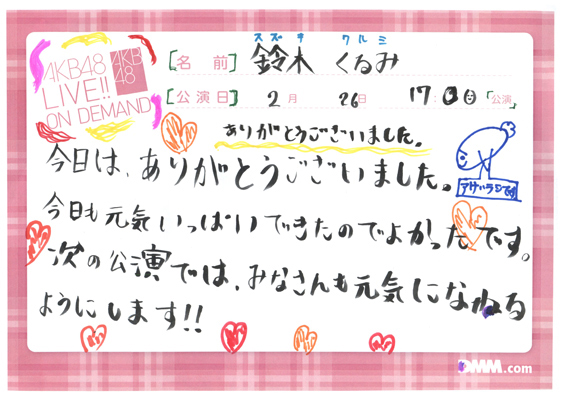 AKB48
LIVE!!
ON DEMAND
AKB
48
スズキ クルミ
[名 前] 鈴木 くるみ
[公演日] 2月 26日 17:00 [公演]
ありがとうございました。
今日は、ありがとうございました。
今日も元気いっぱいできたのでよかったです。
次の公演では、みなさんも元気になれる
ようにします!!
DMM.com